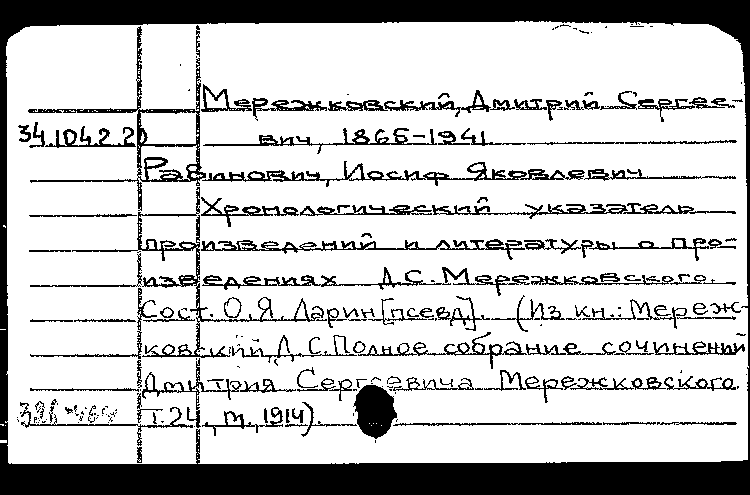 Мережковский, Дмитрий Сергее-
34.104.2.20 вич, 1865-1941.
Рабинович, Иосиф Яковлевич
Хронологический указатель
произведений и литературы о про-
изведениях Д.С. Мережковского.
Сост. О.Я. Ларин [псевд]. (Из кн.: Мереж-
ковский, Д.С. Полное собрание сочинений
Дмитрия Сергеевича Мережковского
Т.24, м., 1914).